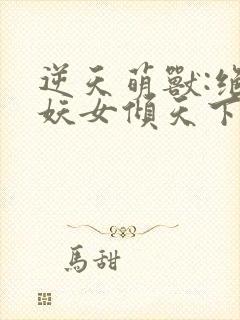 逆天萌獸:絕
妖女傾天下
馬甜